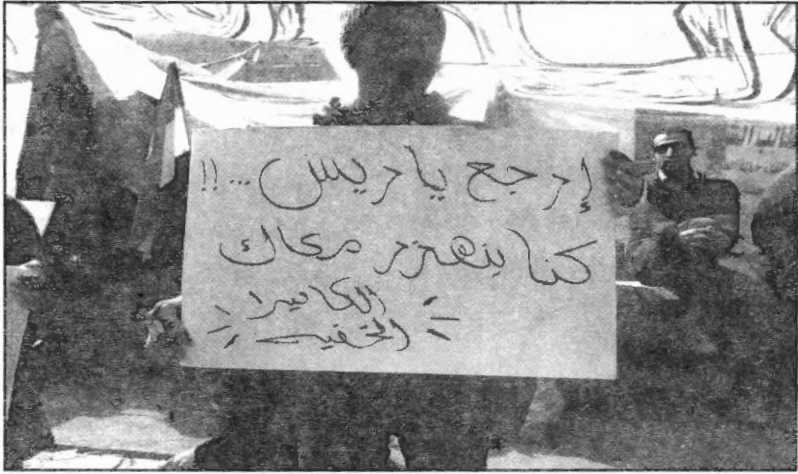 إرجع يا ريس ... !!
كنا بنهزر معاك
الكاميرا
الخفيه